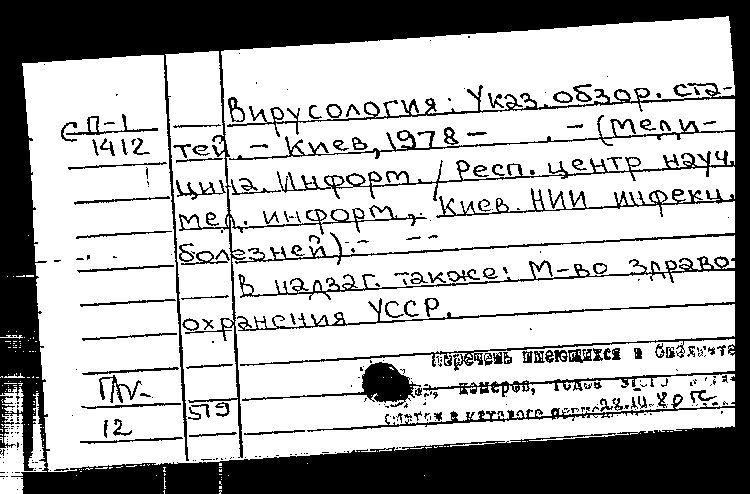 СП-1
1412
Вирусология: Указ. обзор. ста-
тей. - Киев, 1978 - . - (Меди-
цина. Информ. / Респ. центр науч.
мед. информ., Киев. НИИ инфекц.
болезней). - --
В надзаг. также: М-во здраво-
охранения УССР.
Перечень имеющихся в библиоте
номеров, годов
в каталоге
12
579